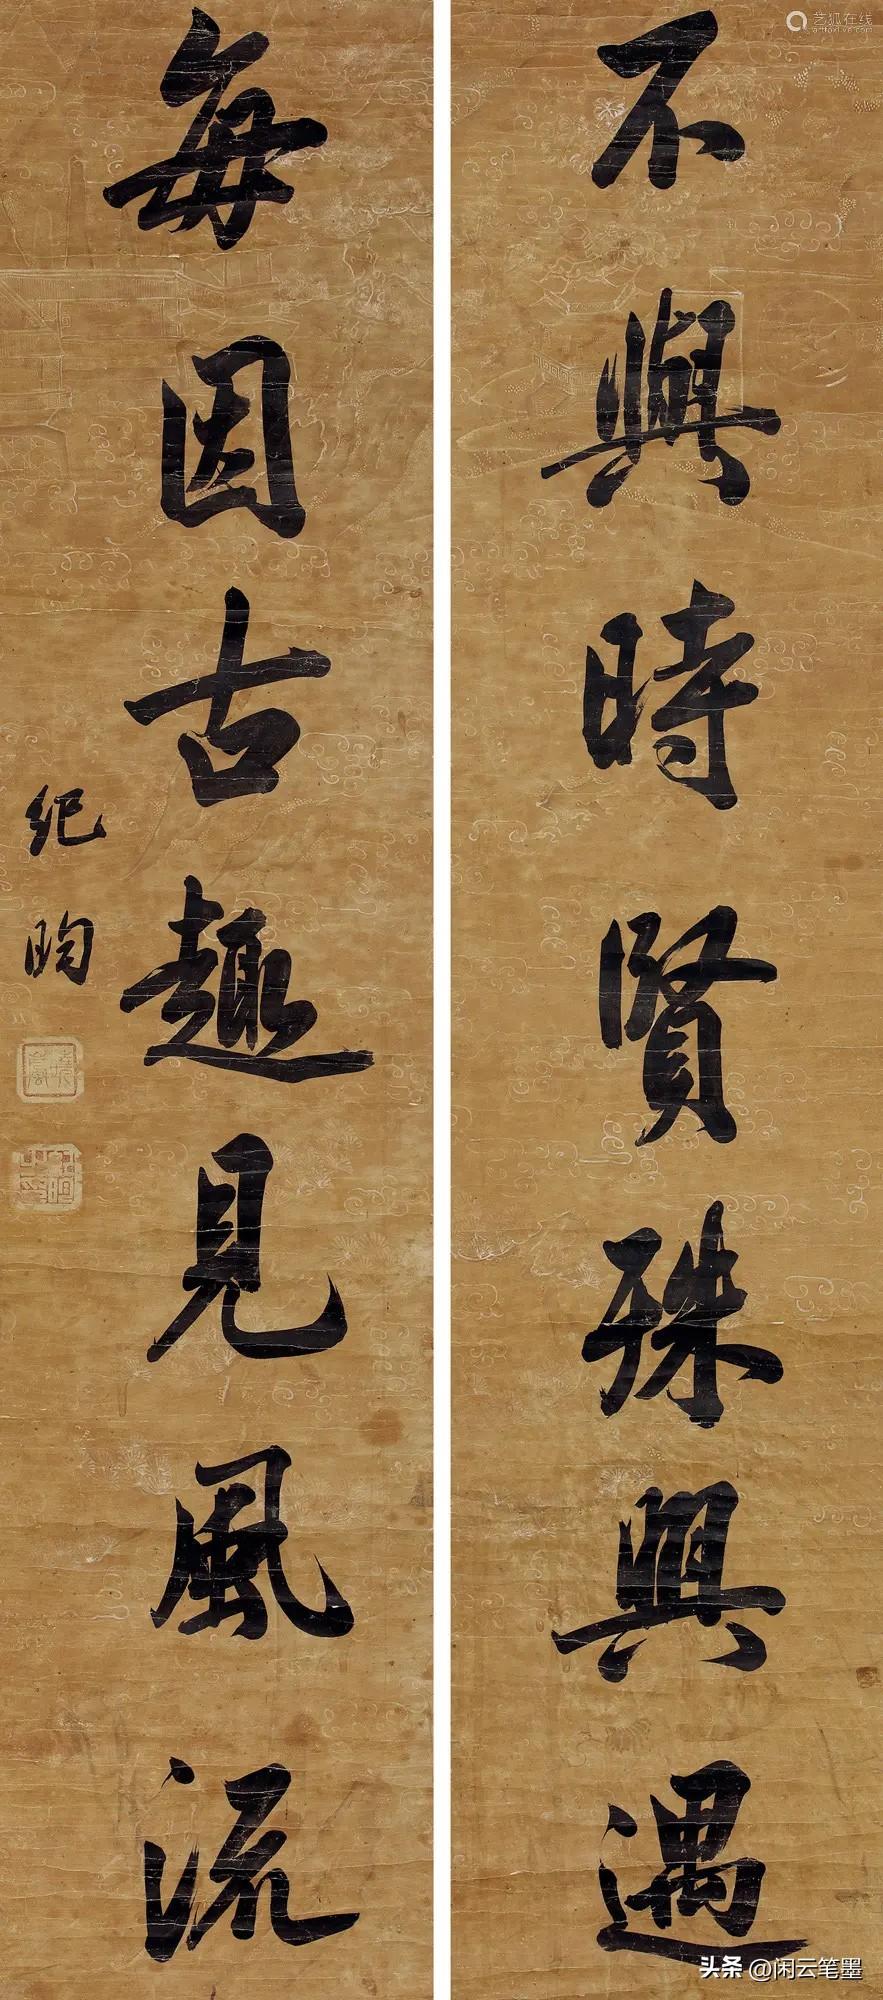 不與時賢殊興遇
每因古趣見風流
纪昀
艺狐在线
artfoxlive.com
头条 @闲云笔墨